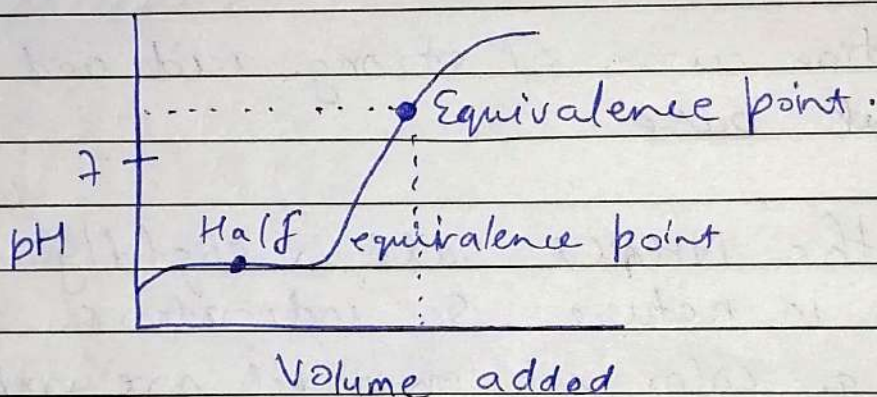 Equivalence point.
7
pH
Half equivalence point
Volume added